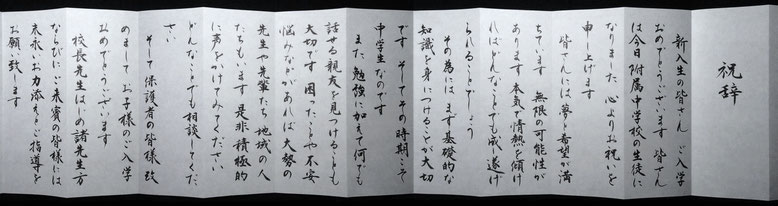 祝辞
新入生の皆さん ご入学
おめでとうございます 皆さん
は今日 附属中学校の生徒に
なりました 心よりお祝いを
申し上げます
皆さんには夢や希望が満
ちています 無限の可能性が
あります 本気で情熱を傾け
ればどんなことでも成し遂げ
られることでしょう
その為には まず基礎的な
知識を身につけることが大切
です そしてその時期こそ
中学生なのです
また 勉強に加えて何でも
話せる親友を見つけることも
大切です 困ったことや不安
悩みなどがあれば 大勢の
先生や先輩たち 地域の人
たちもいます 是非積極的
に声をかけてみてください
どんなことでも相談してくだ
さい
そして 保護者の皆様 改
めまして お子様のご入学
おめでとうございます
校長先生はじめ 諸先生方
ならびにご来賓の皆様には
末永いお力添えとご指導を
お願い致します